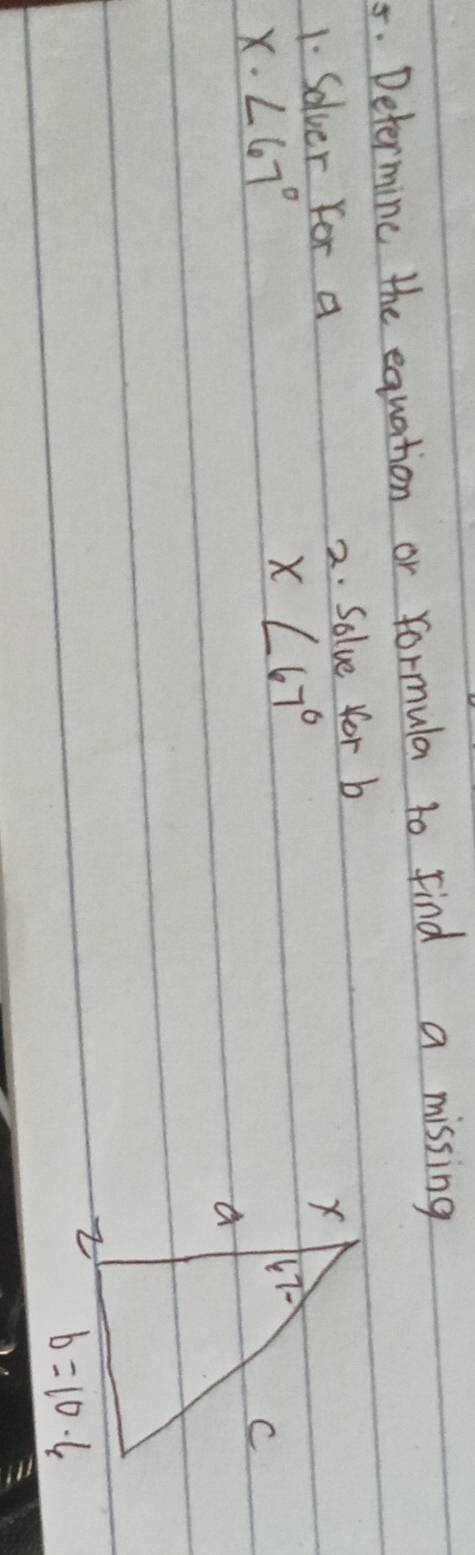 5. Determine the equation or formula to find a missing
1. Solver for a
X. ∠67°
2. Solve for b
X ∠67°
X
67°
a
c
Z
b = 10.4